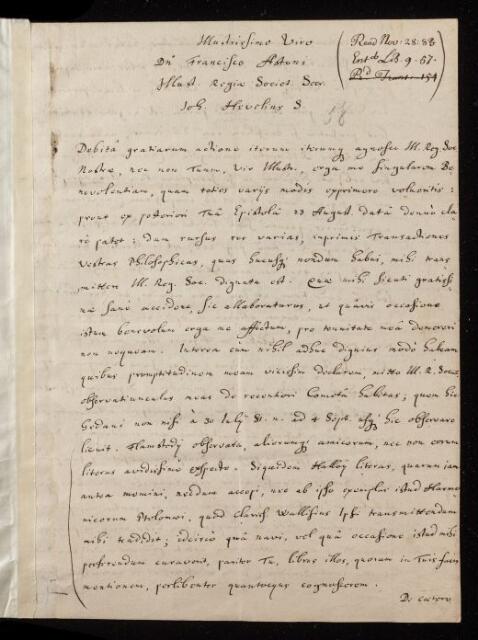 Illustrissimo Viro
Dno Francisco Astoni
Illust. Regiæ Societ. Secr.
Joh. Hevelius S.
Read Nov: 28: 83
Entd L.B. 9. 67.
58
Debitâ gratiarum actione iterum iterumq agnosco Ill. Reg. Soc.
Nostræ, nec non Tuam, Vir Illustr., erga me singularem Be
nevolentiam, quam toties varijs modis exprimere voluistis:
prout ex posteriori Tuâ Epistolâ 23 August. datâ denuò cla
rè patet: Dum rursus res varias, inprimis Transactiones
Vestras Philosophicas, quas hucusq nondum habui, mihi trans
mittere Ill. Reg. Soc. dignata est. Quæ mihi sicuti gratissi
mæ sanè accidere, sic allaboraturus, ut quâvis occasione
istum benevolum erga me affectum, pro tenuitate meâ demereri
non nequeam. Interea cum nihil adhuc dignius modò habeam
quibus promptitudinem meam vicissim declarem, mitto Ill. R. Societ.
observatiunculas meas de recentiori Cometâ habitas; quem hic
Gedani non nisi à 30 Julij st. n. ad 4 Sept. usq hic observare
licuit. Flamstedij observata, aliorumq amicorum, nec non eorum
literas avidissime exspecto. Siquidem Halleij literas, quarum jam
antea memini, nondum accepi, nec ab ipso exemplar istud Harmo
nicorum Ptolemæi, quod Clariss. Wallisius Ipsi transmittendum
mihi tradidit; idcirco quâ navi, vel quâ occasione istud mihi
perferendum curaverit, pariter Tu, libros illos, quorum in Tuis facis
mentionem, perlibenter quantocyus cognoscerem.
De cætero